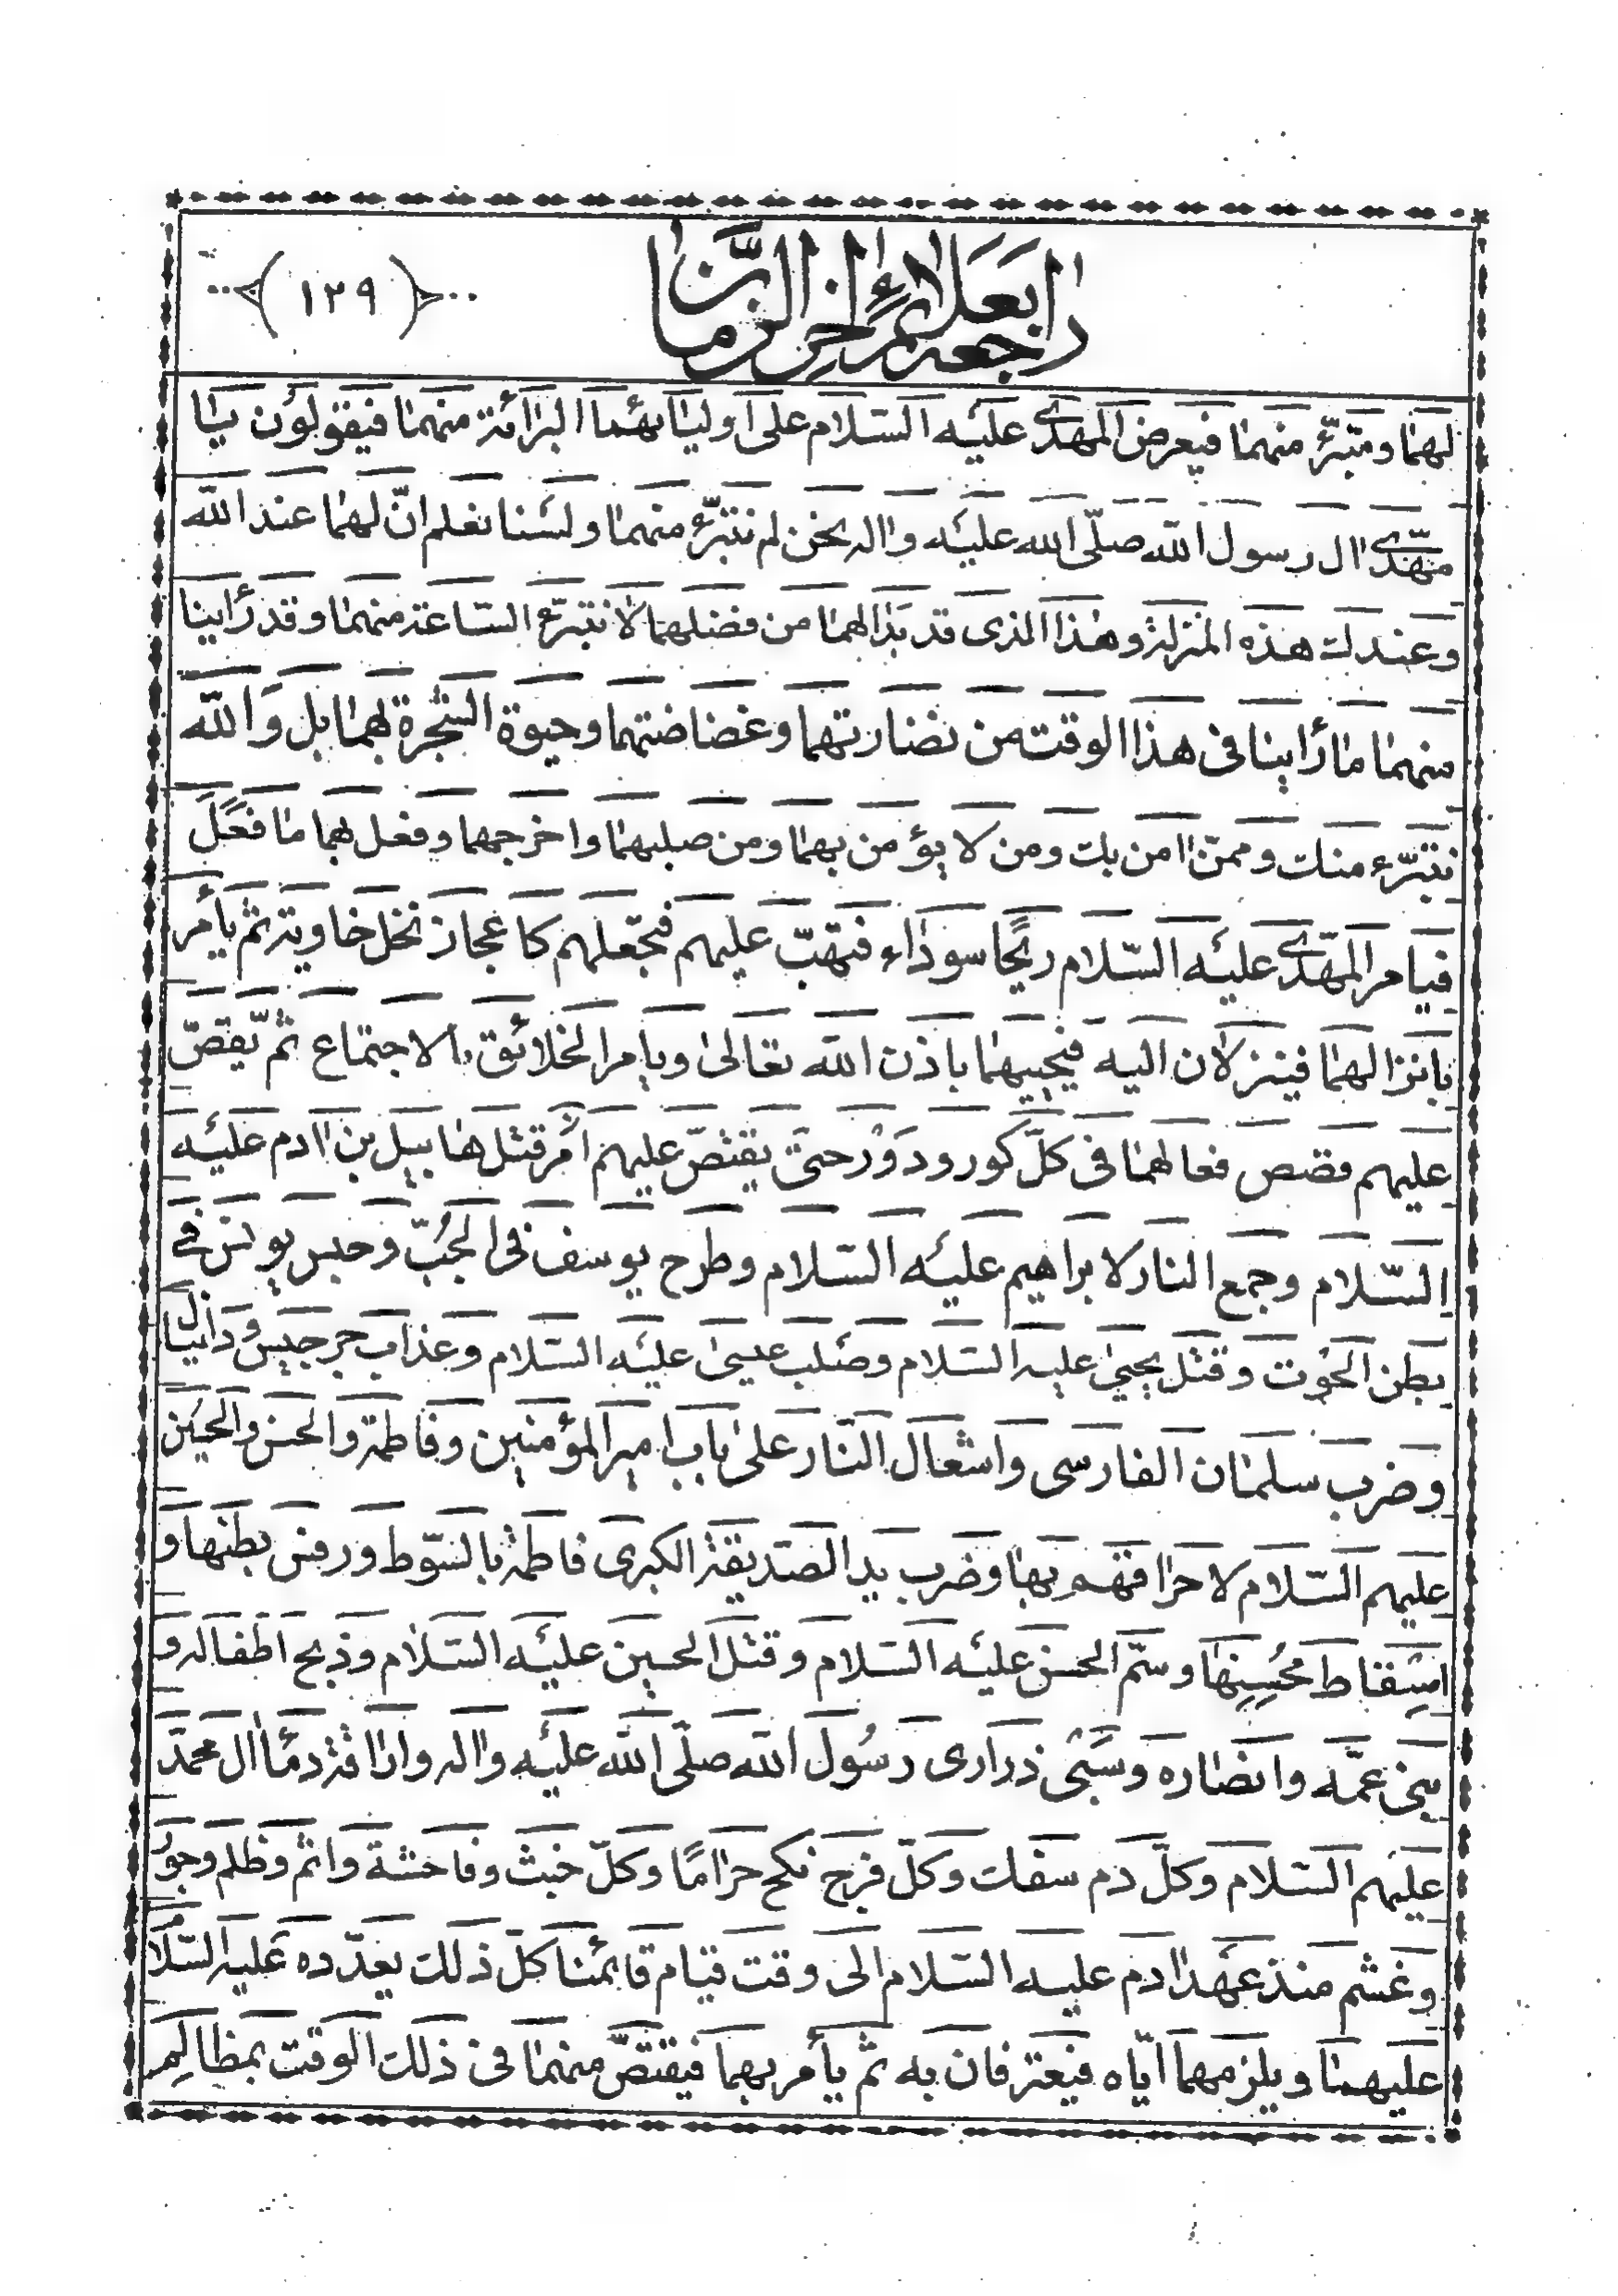 راجعه بعلائم اخر الزمان
﴿١٢٩﴾
لهما ومتبرّء منهما فيعرض المهدى عليه السّلام على اوليائهما البرائة منهما فيقولون يا
مهدى ال رسول الله صلّى الله عليه واله نحن لم نتبرّء منهما ولسنا نعلم انّ لهما عند الله
وعندك هذه المنزلة وهذا الذى قد بدا لهما من فضلهما لا نتبرّء السّاعة منهما وقد رأينا
منهما ما رأينا فى هذا الوقت من نضارتهما وغضاضتهما وحيوة الشّجرة لهما بل والله
نتبرّء منك وممّن امن بك ومن لا يؤمن بهما ومن صلبهما واخرجهما وفعل لهما ما فعل
فيامر المهدى عليه السّلام ريحًا سوداء فتهبّ عليهم فتجعلهم كاعجاز نخل خاوية ثم يأمر
بانزالهما فينزلان اليه فيحييهما باذن الله تعالى ويامر الخلائق بالاجتماع ثم يقصّ
عليهم قصص فعالهما فى كلّ كور ودور حتى يقتصّ عليهم امر قتل هابيل بن ادم عليه
السّلام وجمع النار لابراهيم عليه السّلام وطرح يوسف فى الجُبّ وحبس يونس فى
بطن الحوت وقتل يحيى عليه السّلام وصلب عيسى عليه السّلام وعذاب جرجيس ودانيال
وضرب سلمان الفارسى واشعال النّار على باب امير المؤمنين وفاطمة والحسن والحسين
عليهم السّلام لاحراقهم بها وضرب يد الصديقة الكبرى فاطمة بالسّوط ورفس بطنها و
اسقاط محسنها وسمّ الحسن عليه السّلام وقتل الحسين عليه السّلام وذبح اطفاله و
بنى عمّه وانصاره وسبى ذرارى رسول الله صلّى الله عليه واله واراقة دماء ال محمّد
عليهم السّلام وكلّ دم سفك وكلّ فرج نكح حرامًا وكلّ خبث وفاحشة واثم وظلم وجور
وغشم منذ عهد ادم عليه السّلام الى وقت قيام قائمنا كلّ ذلك يعدّده عليه السّلام
عليهما ويلزمهما ايّاه فيعترفان به ثم يأمر بهما فيقتصّ منهما فى ذلك الوقت بمظالم